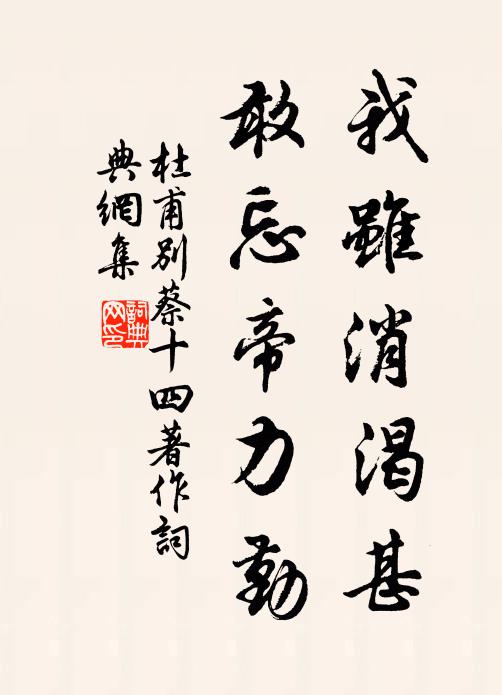 我雖消渴甚
敢忘帝力勤
杜甫別蔡十四著作詞
典網集
詞典
网印